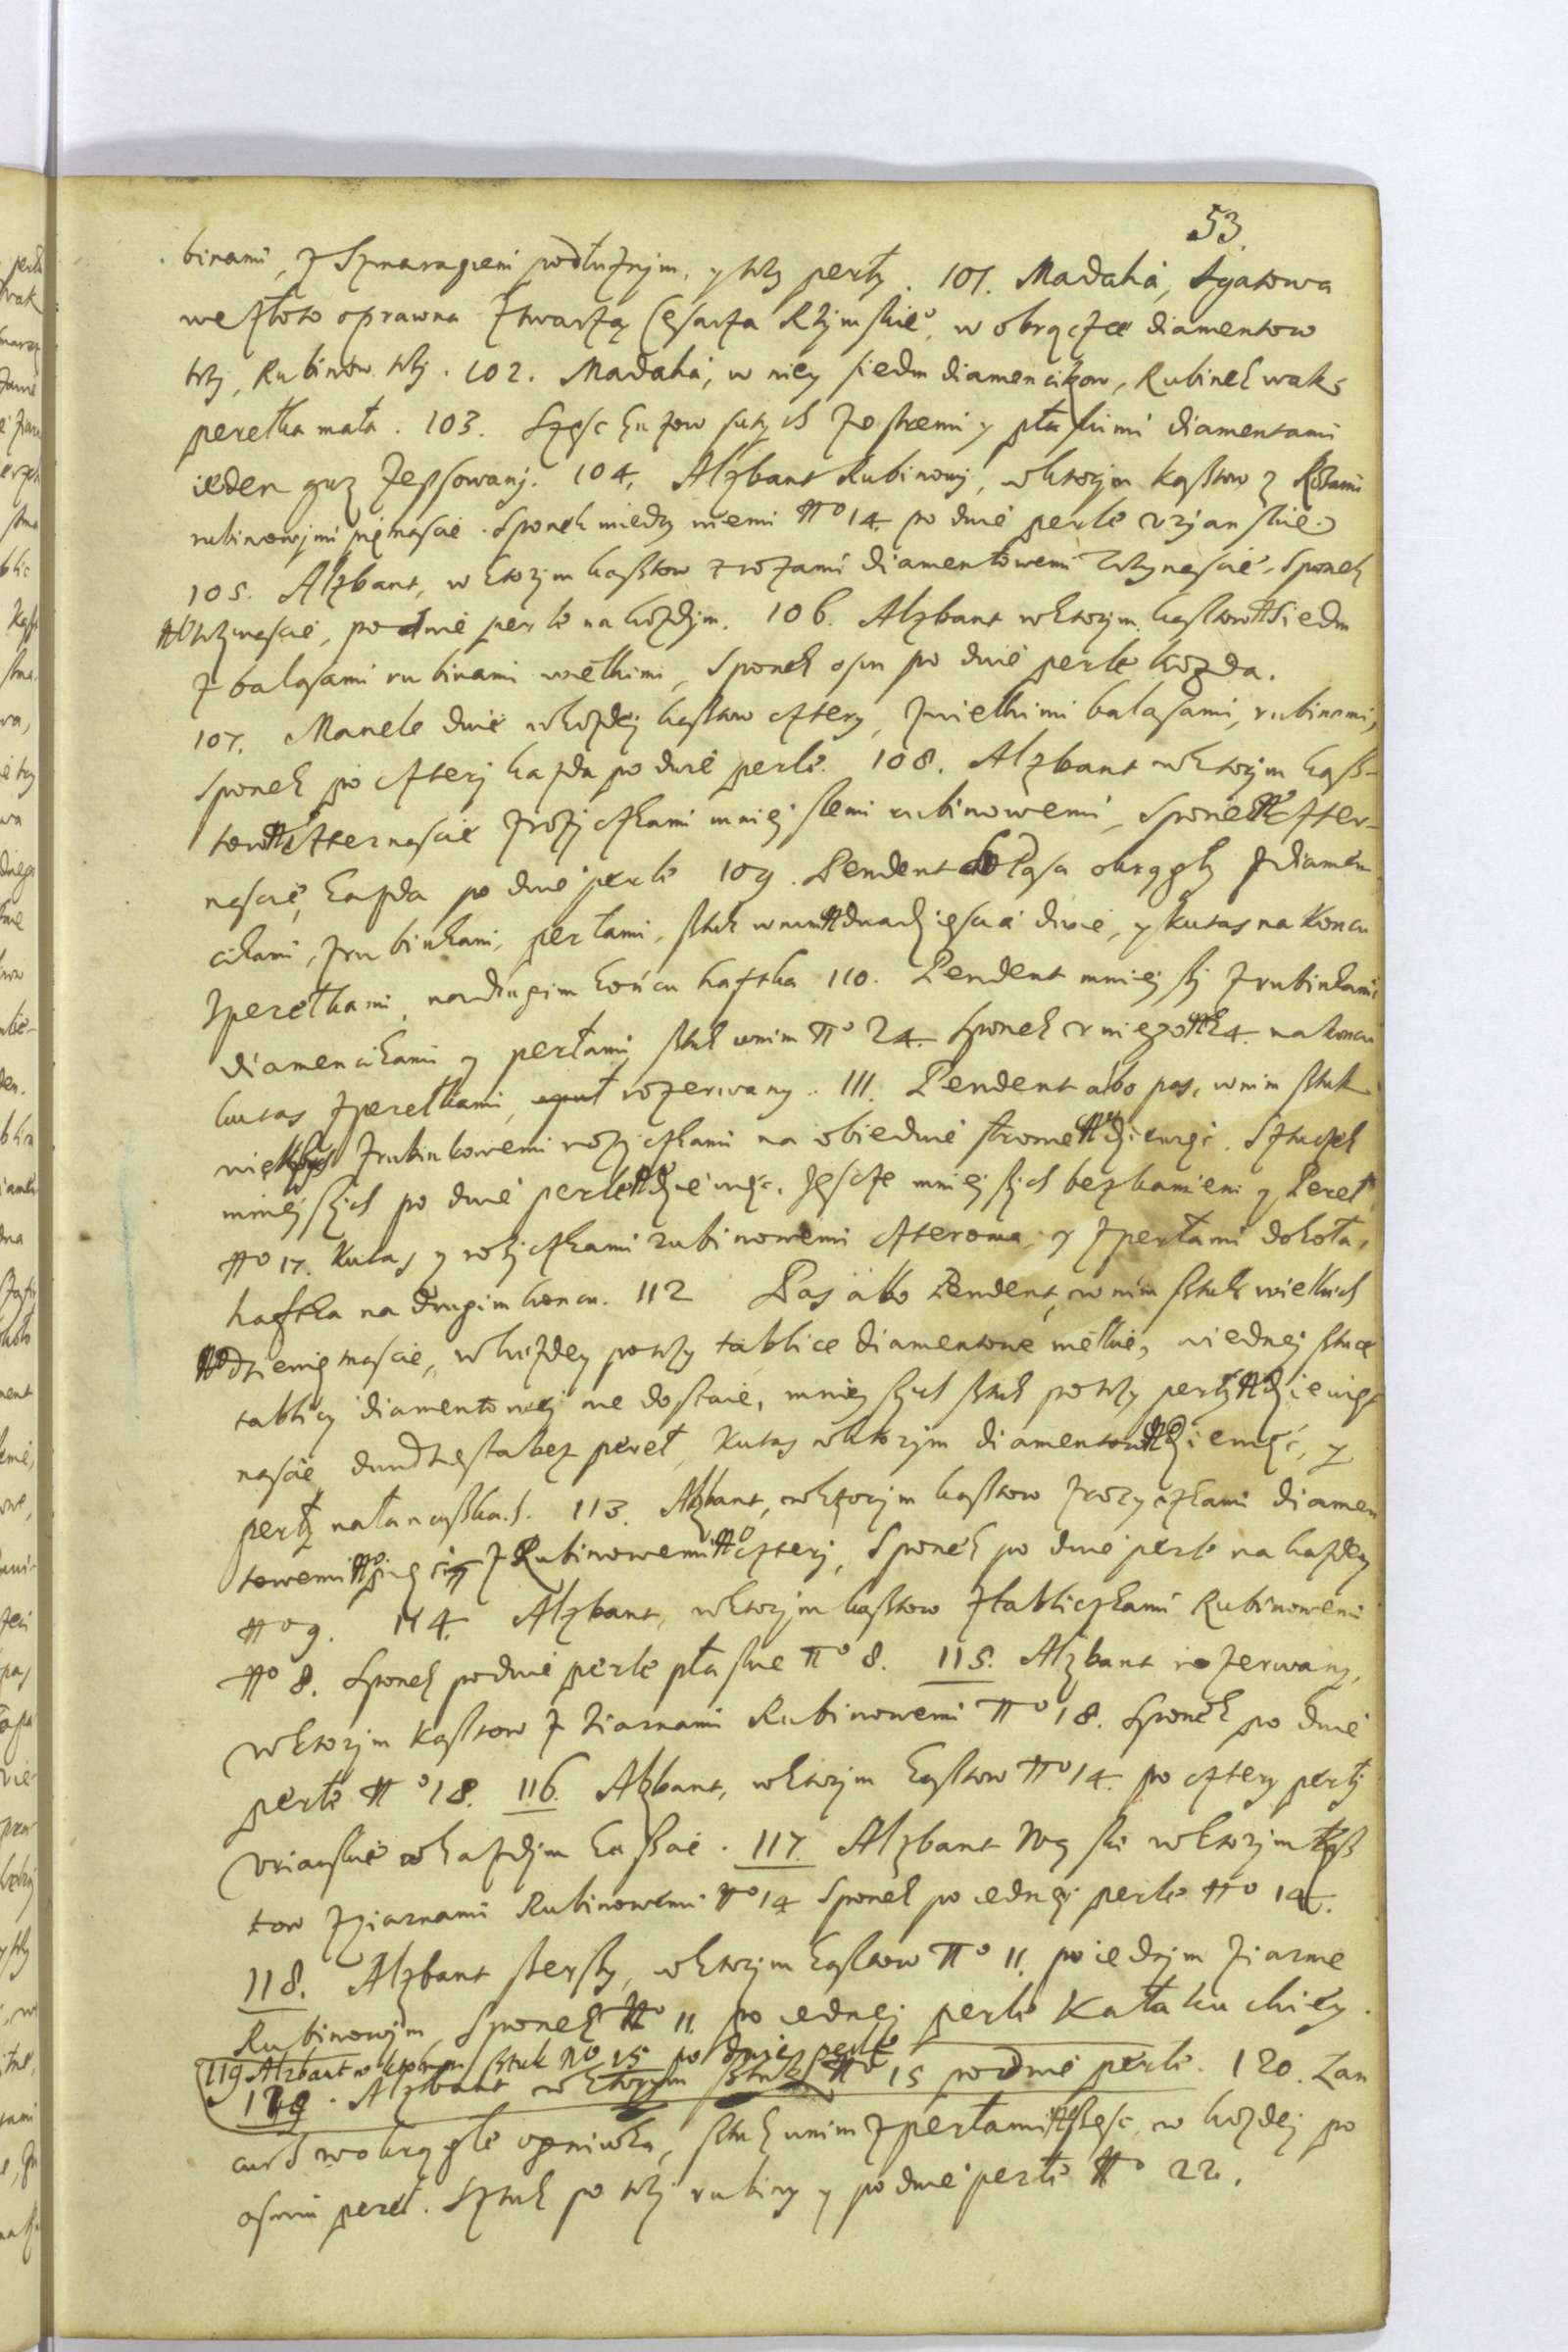 53.
binami, z Szmaragiem podłużnym, y trzy perły. 101. Madaha, Agatowa
we złoto oprawna z twarzą Cesarza Rzymskieo, w obrączce diamentow
trzy, Rubinow trzy. 102. Madaha, w niey siedm diamencikow, Rubinek
perełka mała. 103. Szesc guzow z ostremi y płaskimi diamentami
ieden guz zepsowany. 104. Alzbant Rubinowy, w ktorym kasztow z Rożami
rubinowymi piętnascie. Sponek miedzy niemi No 14. po dwie perle vrianskie
105. Alzbant, w ktorym kasztow z rożami diamentowemi trzynascie. Sponek
No trzynascie, po dwie perle na kożdym. 106. Alzbant w ktorym kasztow No siedm
z balasami rubinami wielkimi, Sponek osm po dwie perle kożda.
107. Manele dwie w kożdej kasztow cztery, z wielkimi balasami, rubinami,
Sponek po cztery każda po dwie perle. 108. Alzbant w ktorym kasz-
tow No czternascie z rożyczkami mniejszemi rubinowemi, Sponek No czter-
nascie, każda po dwie perle 109. Pendent do Pasa okrągły z diamen
cikami, z rubinkami, perłami, sztuk w nim No dwadziescia dwie, y kutas na koncu
z perełkami, na drugim końcu haftka 110. Pendent mniejszy z rubinkami
diamencikami y perłami sztuk w nim No 24. Sponek v niego No 24. na koncu
kutas z perełkami, rozerwany. 111. Pendent albo pas, w nim sztuk
większych z rubinkowemi rożyczkami na obiedwie stronie No dziewięć. Sztuczek
mniejszych po dwie perle No dziewięc. Jescze mniejszych bez kamieni y Pereł
No 17. Kutas z rożyczkami rubinowemi czteroma y z perłami dokoła,
haftka na drugim koncu. 112 Pas albo Pendent, w nim sztuk wielkich
No dziewiętnascie, w kożdey po trzy tablice diamentowe wielkie, w iednej sztuce
tablicy diamentowej nie dostaie, mniejszych sztuk po trzy perły No dziewięt
nascie, dwudziesta bez pereł, Kutas w ktorym diamentow No dziewięć, y
perły na łancuszkach. 113. Alzbant, w ktorym kasztow z rożyczkami diamen
towemi No pięć z Rubinowemi No cztery, Sponek po dwie perle na każdey
No 9. 114. Alzbant, w ktorym kasztow z tabliczkami Rubinowemi
No 8. Sponek po dwie perle płaskie No 8. 115. Alzbant rozerwany,
w ktorym kasztow z ziarnami Rubinowemi No 18. Sponek po dwie
perle No 18. 116. Alzbant, w ktorym kasztow No 14. po cztery perły
vrianskie w każdym kaszcie. 117. Alzbant wąski w ktorym kasz
tow z ziarnami Rubinowemi No 14 Sponek po iednej perle No 14.
118. Alzbant szerszy, w ktorym kasztow No 11. po iednym ziarnie
Rubinowym, Sponek No 11. po iednej perle Kałakuckiey.
119 Alzbant w ktorym sztuk No 15 po dwie perle
119. Alzbant w ktorym sztuk No 15 po dwie perle. 120. Łan
cuch w okrągłe ogniwka, sztuk w nim z perłami No szesc, w kożdej po
osmi pereł. Sztuk po trzy rubiny y po dwie perle No 22.